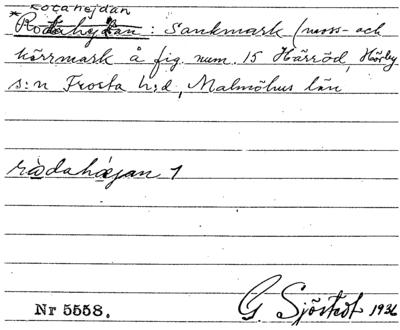 Rotahejdan
*Rotahejdan: Sankmark (moss- och
kärrmark å fig. num. 15 Härröd, Hörby
s:n Frosta h:d, Malmöhus län
ròdahǽjan 1
Nr 5558. G Sjöstedt 1936